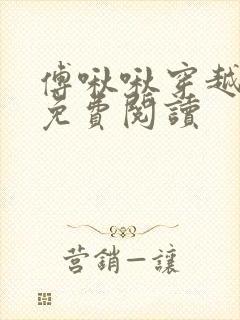 傅啾啾穿越
免費閱讀
营銷—讓